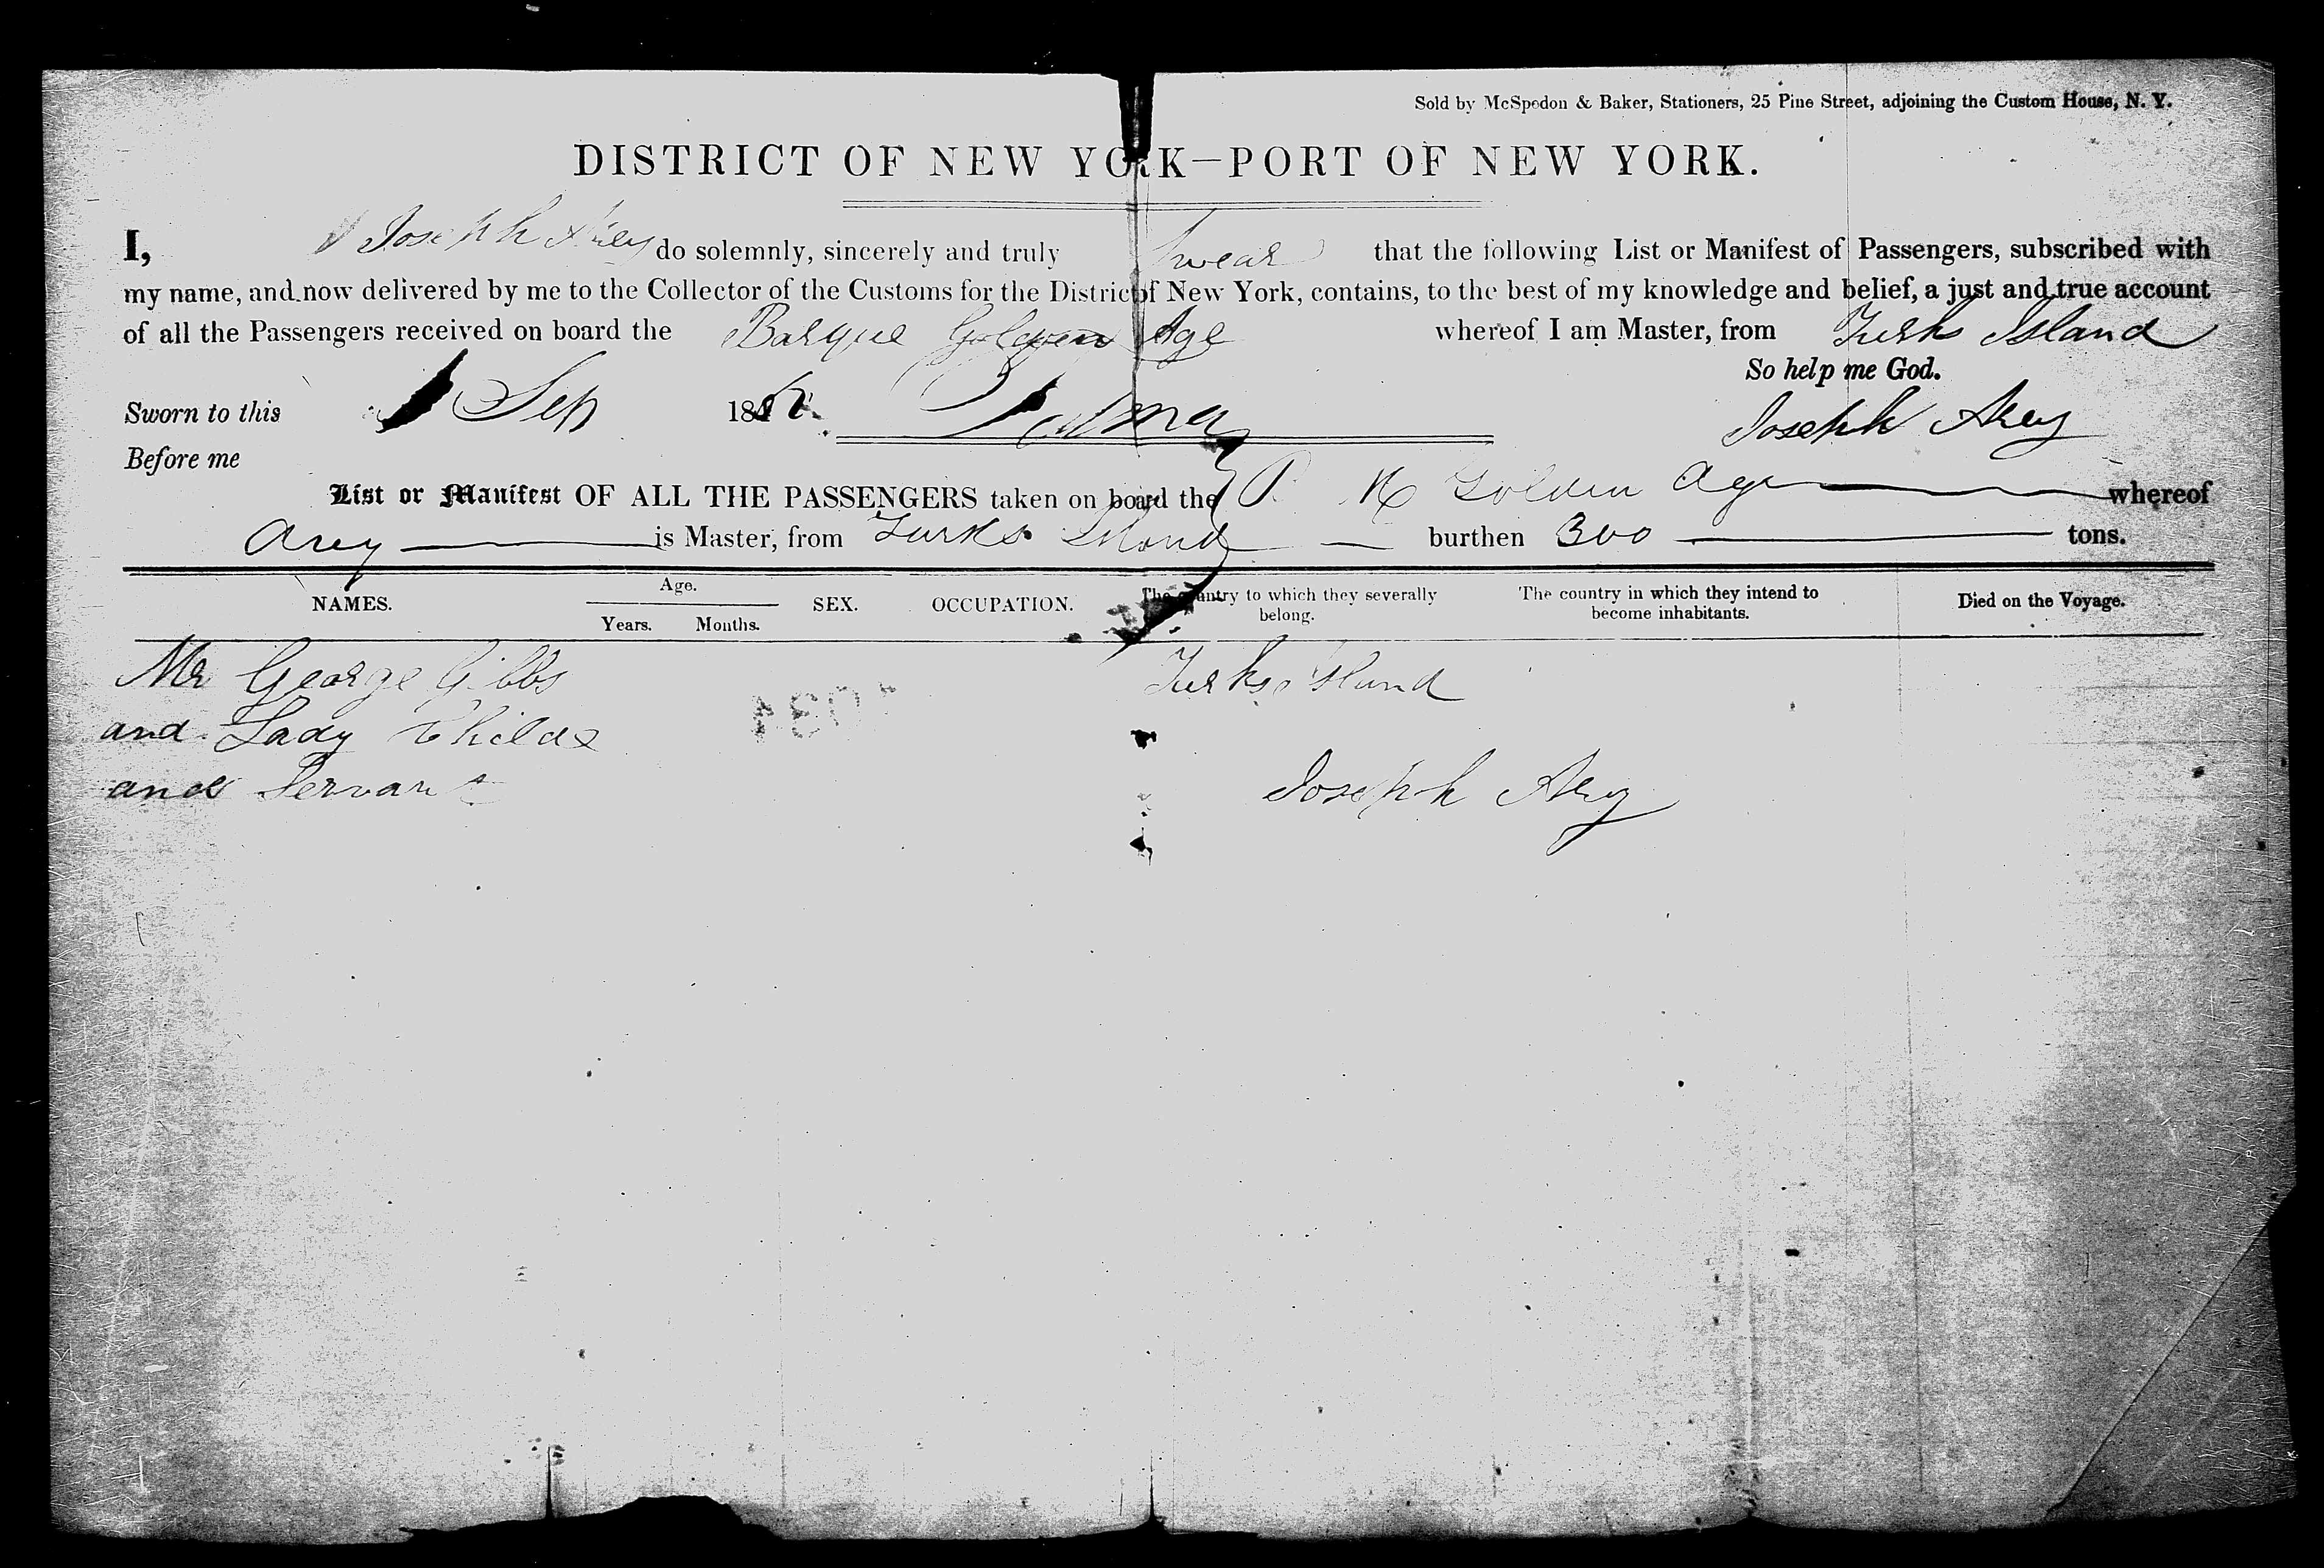 Sold by McSpedon & Baker, Stationers, 25 Pine Street, adjoining the Custom House, N. Y.
DISTRICT OF NEW YORK—PORT OF NEW YORK.
I, Joseph Arey do solemnly, sincerely and truly swear that the following List or Manifest of Passengers, subscribed with
my name, and now delivered by me to the Collector of the Customs for the District of New York, contains, to the best of my knowledge and belief, a just and true account
of all the Passengers received on board the Barque Golden Age whereof I am Master, from Turks Island
So help me God.
Sworn to this Sep 18 Joseph Arey
Before me
List or Manifest OF ALL THE PASSENGERS taken on board the Golden Age whereof
Arey is Master, from Turks Island burthen 300 tons.
NAMES. Age. Years. Months. SEX. OCCUPATION. The country to which they severally belong. The country in which they intend to become inhabitants. Died on the Voyage.
Mr George Gibbs Turks Island
and Lady Child
and Servant Joseph Arey